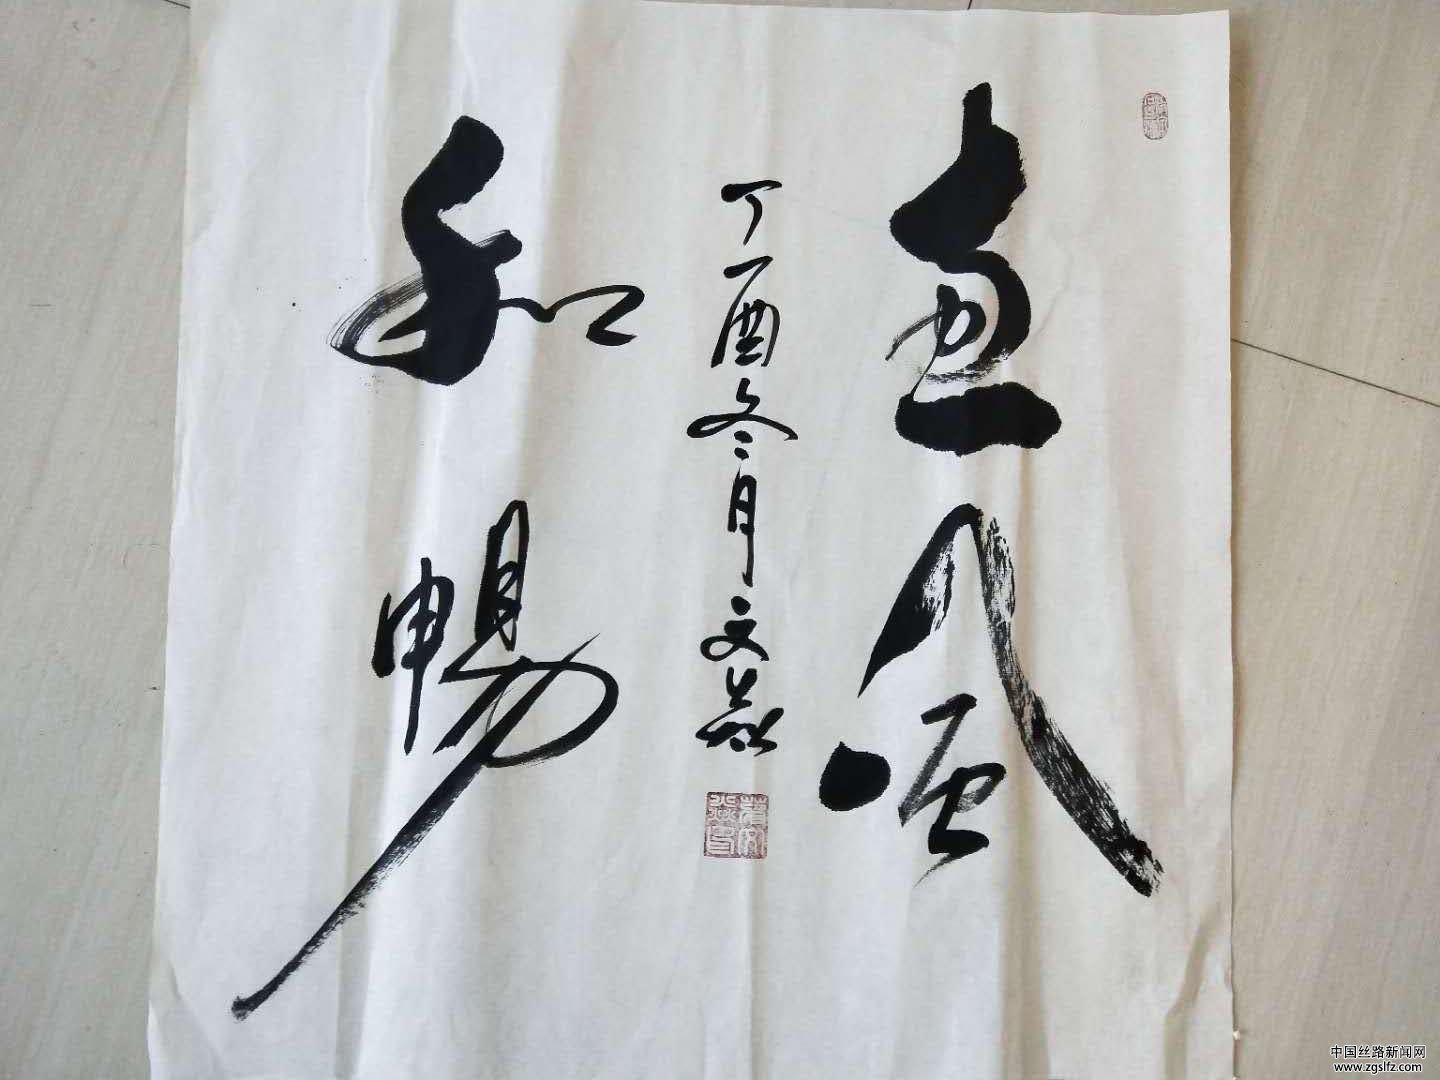 惠風
和暢
丁酉冬月文焱
中国丝路新闻网
www.zgslfz.com